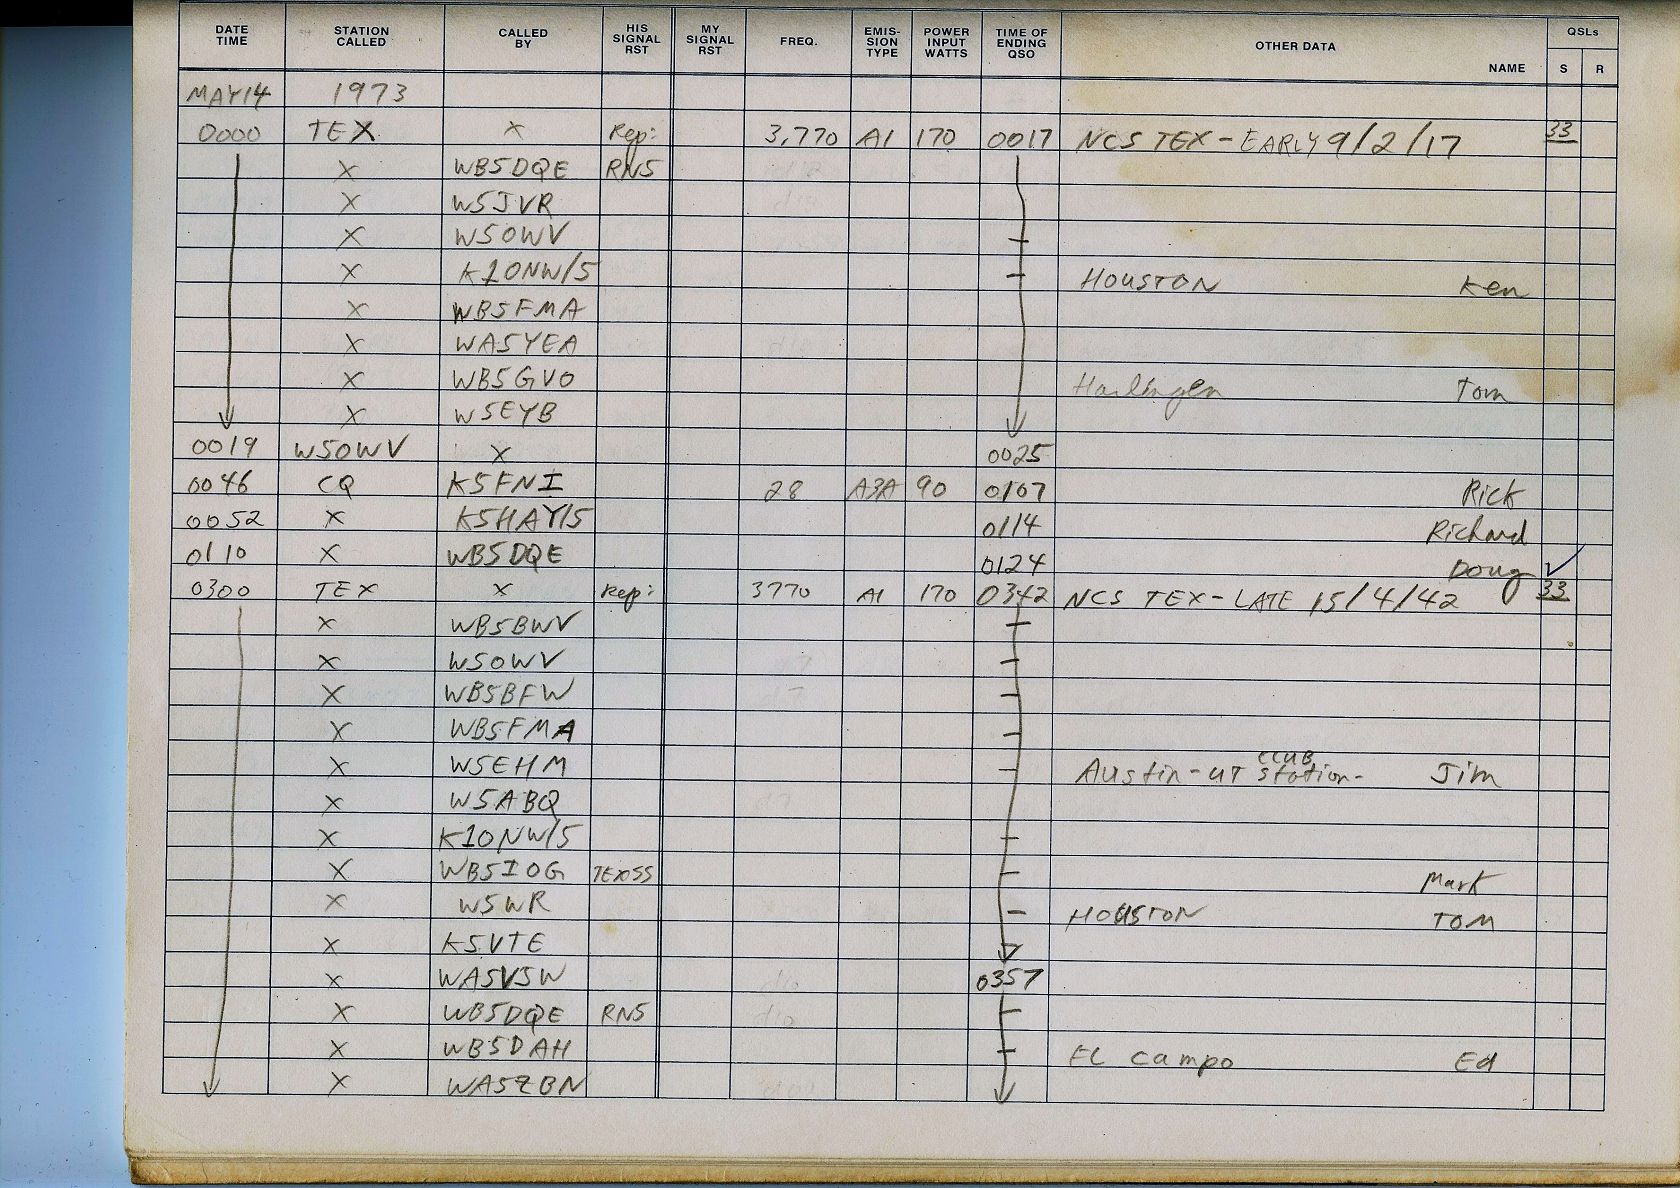 DATE TIME STATION CALLED CALLED BY HIS SIGNAL RST MY SIGNAL RST FREQ. EMIS-SION TYPE POWER INPUT WATTS TIME OF ENDING QSO OTHER DATA NAME QSLs S R
MAY 14 1973
0000 TEX X Rep: 3,770 A1 170 0017 NCS TEX - EARLY 9/2/17 33
X WB5DQE RN5
X W5JVR
X W5OWV
X K1ONW/5 HOUSTON Ken
X WB5FMA
X WA5YEA
X WB5GVO Harlingen Tom
X W5EYB
0019 W5OWV X 0025
0046 CQ K5FNI 28 A3A 90 0107 Rick
0052 X K5HAY/5 0114 Richard
0110 X WB5DQE 0124 Doug ✓
0300 TEX X Rep: 3770 A1 170 0342 NCS TEX - LATE 15/4/42 33
X WB5BWV
X W5OWV
X WB5BFW
X WB5FMA
X W5EHM Austin - UT club station - Jim
X W5ABQ
X K1ONW/5
X WB5IOG Mark
X W5WR HOUSTON TOM
X K5VTE
X WA5VSW 0357
X WB5DQE RN5
X WB5DAH EL campo Ed
X WA5ZBN